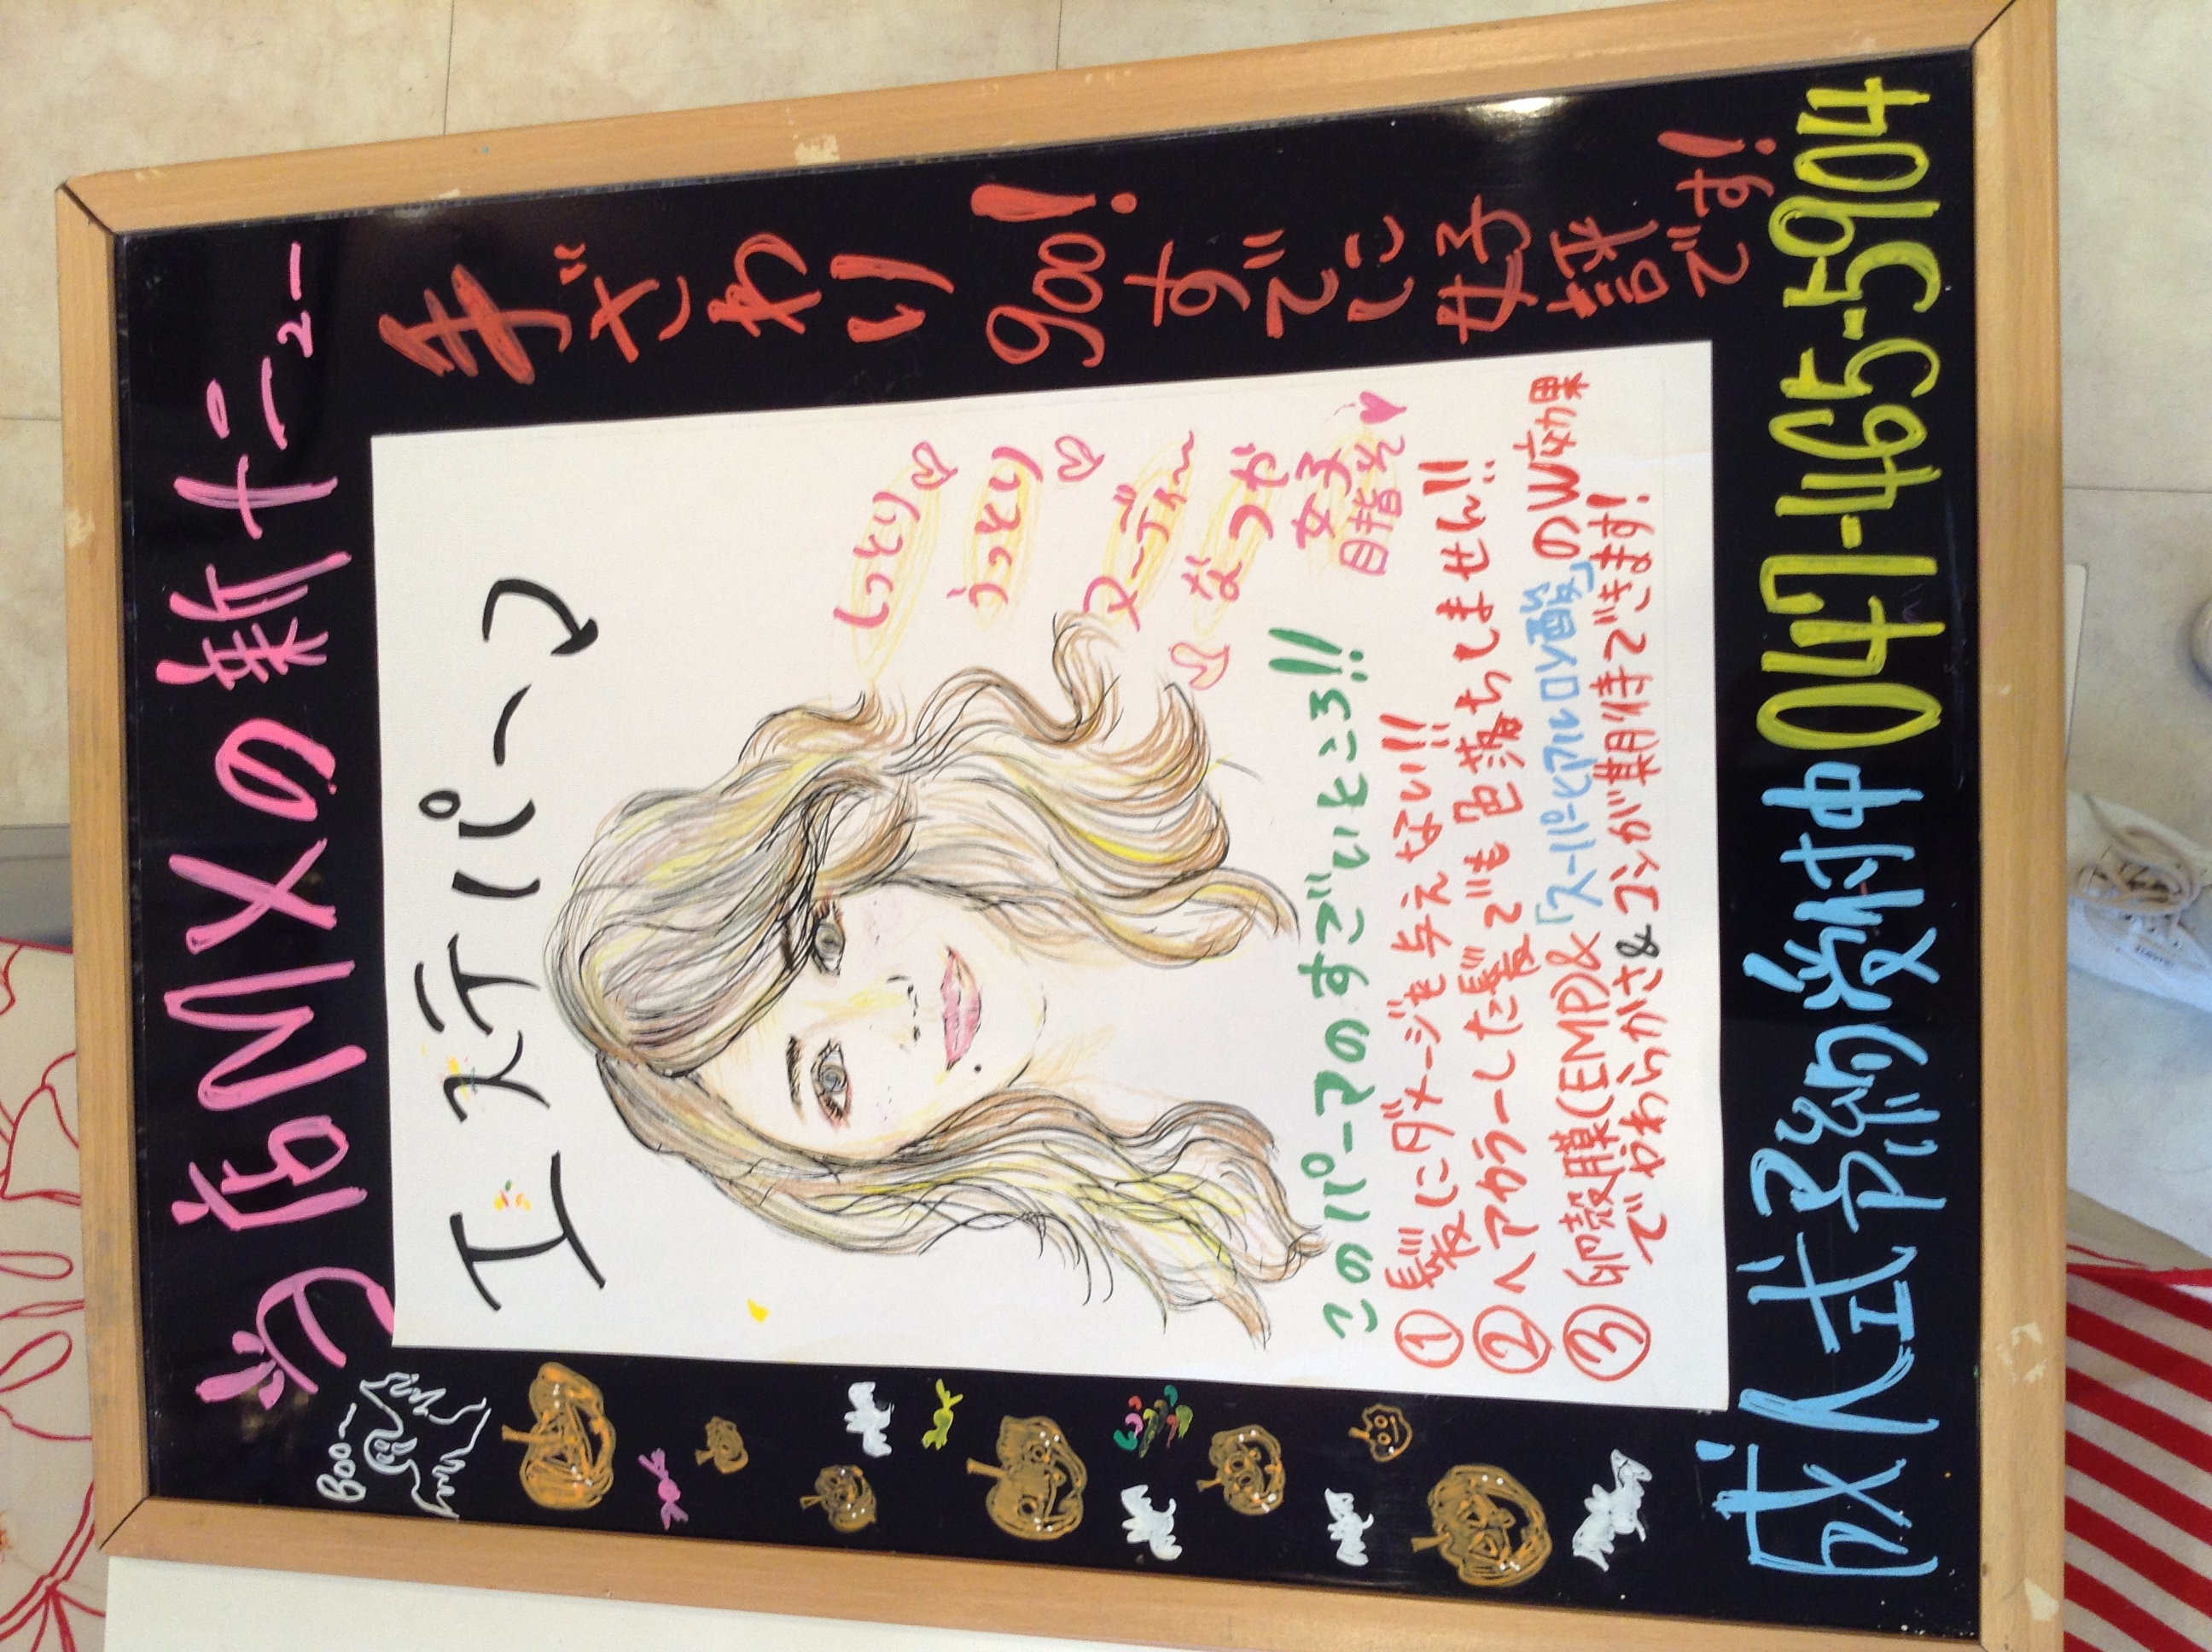 MXの新
Boo〜
エステパーマ
しっとり
うっとり
ヌーディ〜
なつや
女子
目指せ
このパーマのすごいところ!!
①髪にダメージを与えない!!
②ヘアカラーした髪でも色落ちしません!!
③卵殻膜(EMP)&「スーパーヒアルロン酸」のW効果
でやわらかさ&コシが期待できます!
手ざわりgoo!すでに好評です!
成人式予約受付中047-465-5904